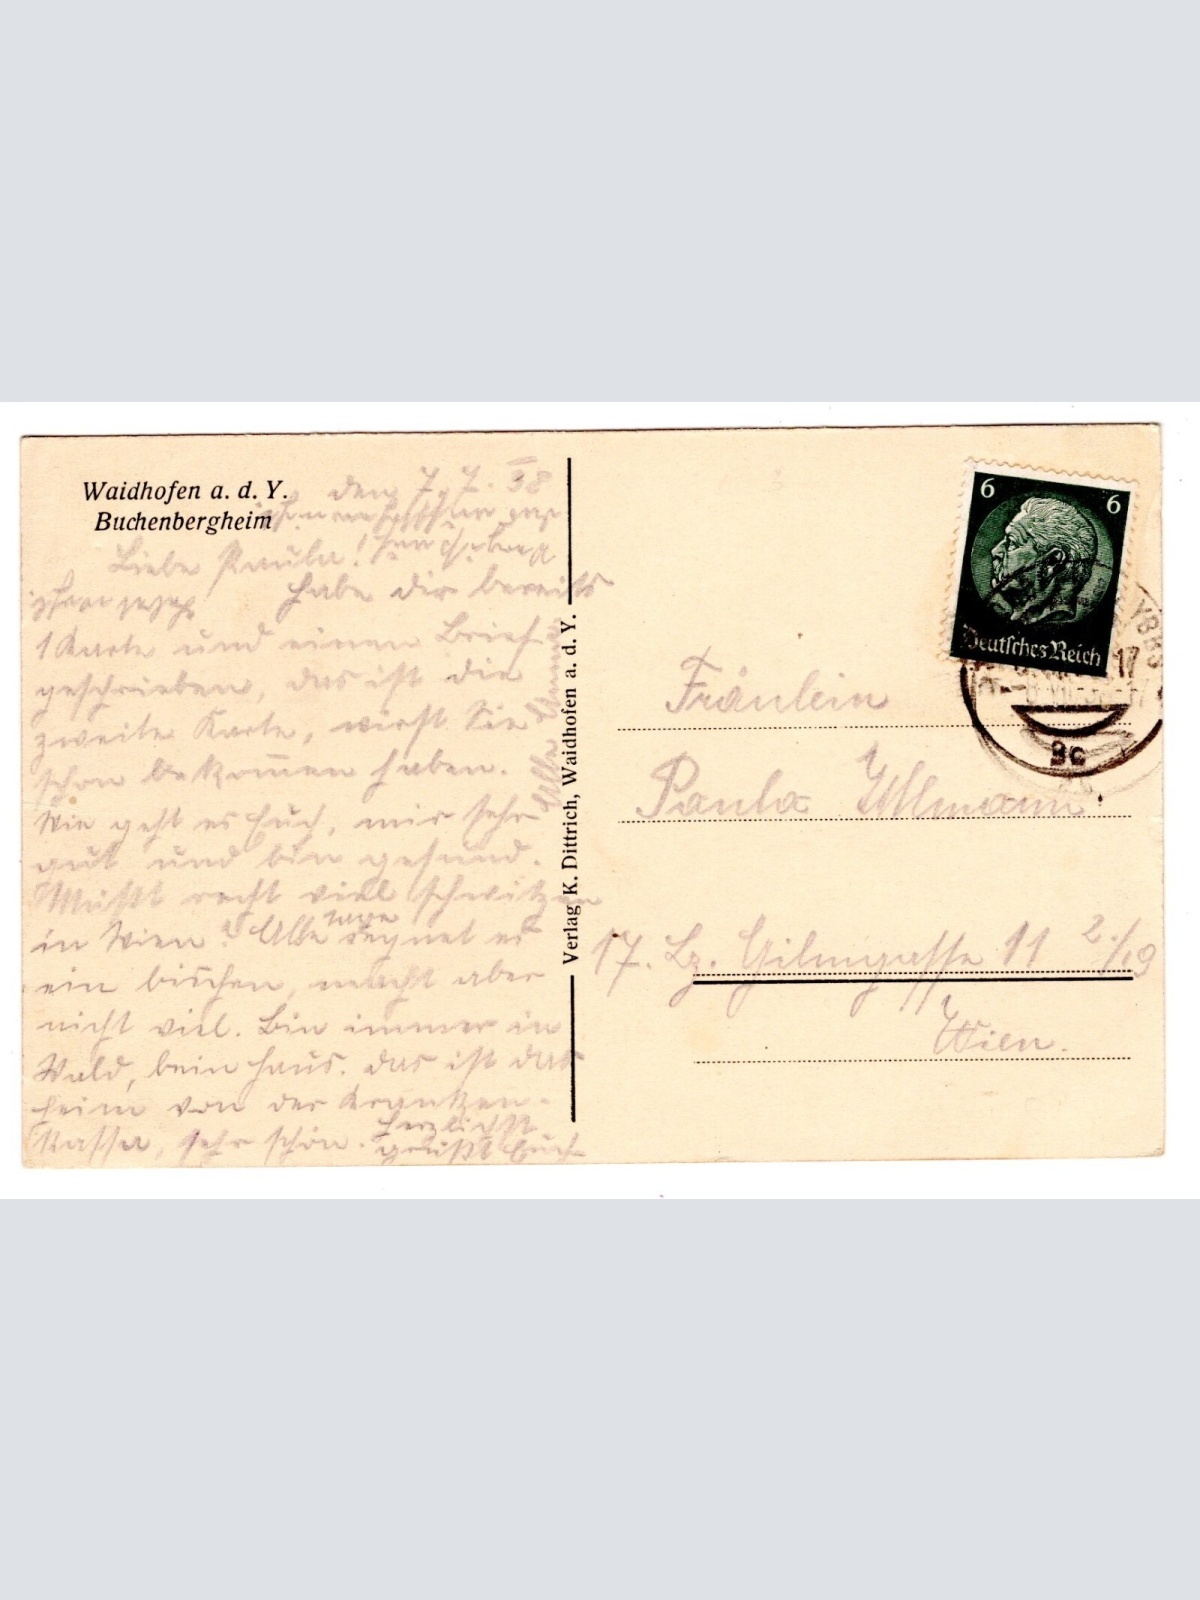 Waidhofen a. d. Y.
Buchenbergheim
den 7. 7. 38
Liebe Paula!
habe dir bereits
1 Karte und einen Brief
geschrieben, das ist die
zweite Karte, wirst Sie
schon bekom̄en haben.
Wie geht es Euch, mir sehr
gut und bin gesund.
Müßt recht viel schwitzen
in Wien? Alle Tage regnet es
ein bischen, macht aber
nicht viel. Bin immer im
Wald, beim Haus. Das ist das
Heim von der Kranken-
Kassa, sehr schön. Herzlichst
grüßt Euch
Verlag K. Dittrich, Waidhofen a. d. Y.
6 6
Deutsches Reich
YBBS
17
9c
Fräulein
Paula Ullmann
17. Bz. Gilmgasse 11 2./19
Wien.